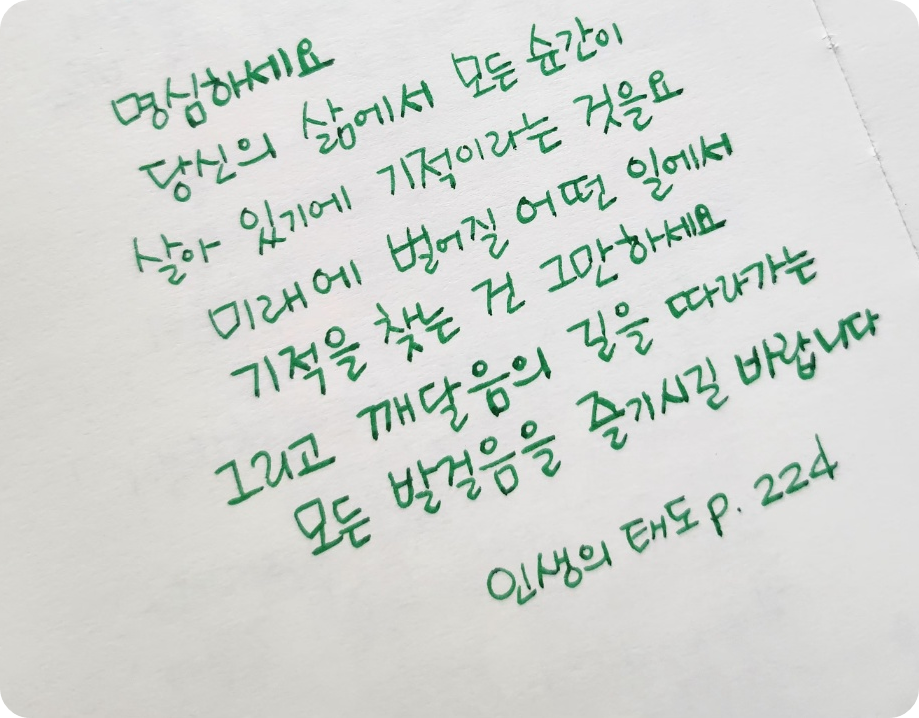 명심하세요
당신의 삶에서 모든 순간이
살아 있기에 기적이라는 것을요
미래에 벌어질 어떤 일에서
기적을 찾는 건 그만하세요
그리고 깨달음의 길을 따라가는
모든 발걸음을 즐기시길 바랍니다
인생의 태도 p. 224